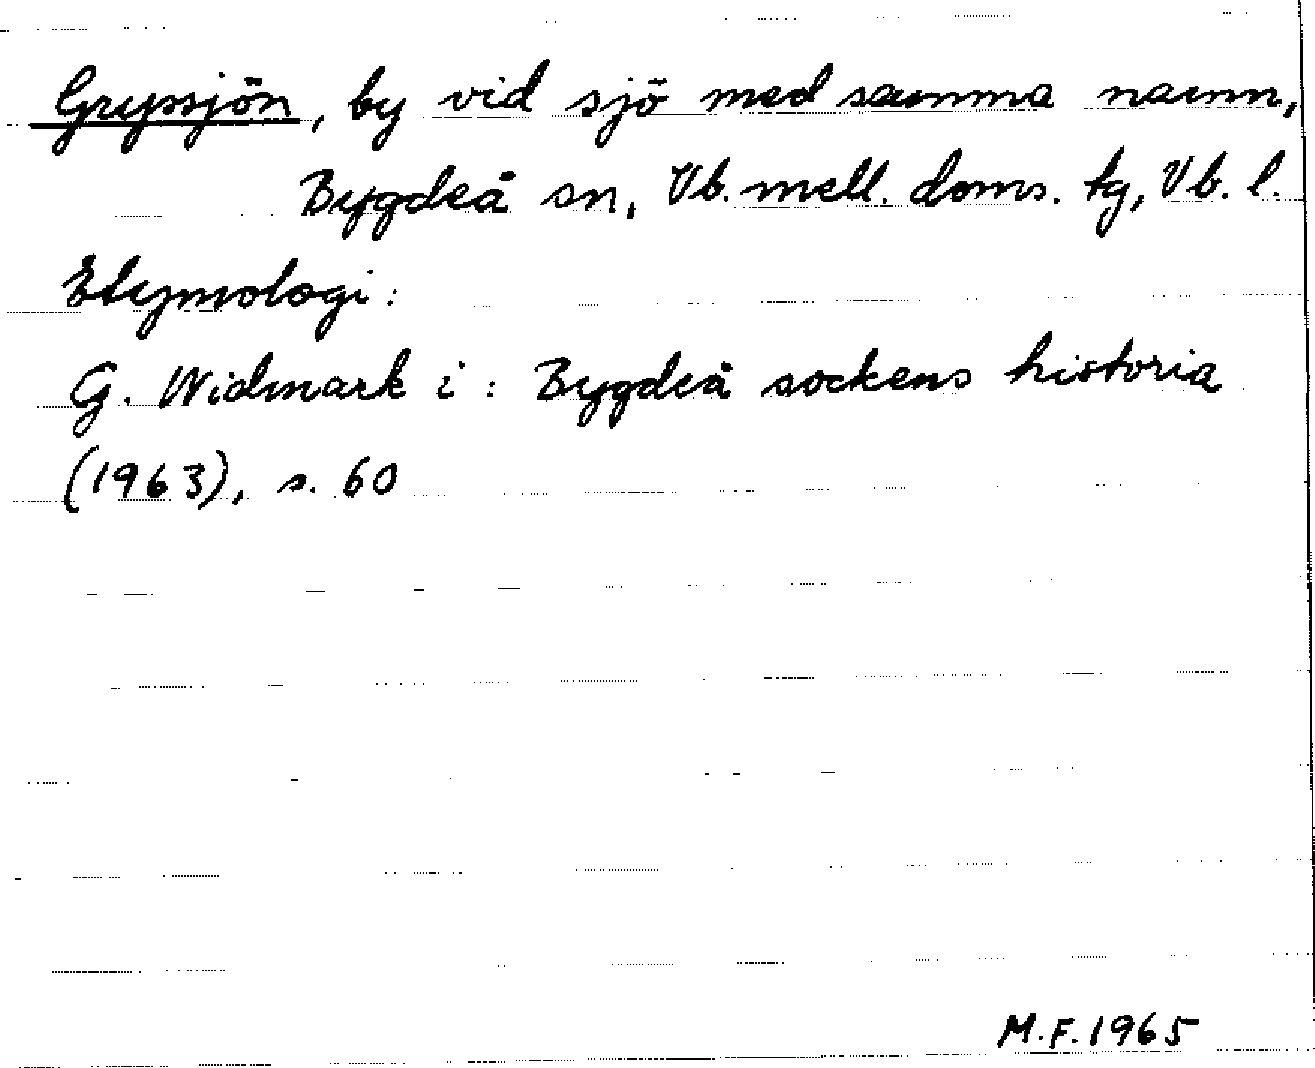 Grypsjön, by vid sjö med samma namn,
Bygdeå sn, Vb. mell. doms. tg, Vb. l.
Etymologi:
G. Widmark i: Bygdeå sockens historia
(1963), s. 60
M.F. 1965